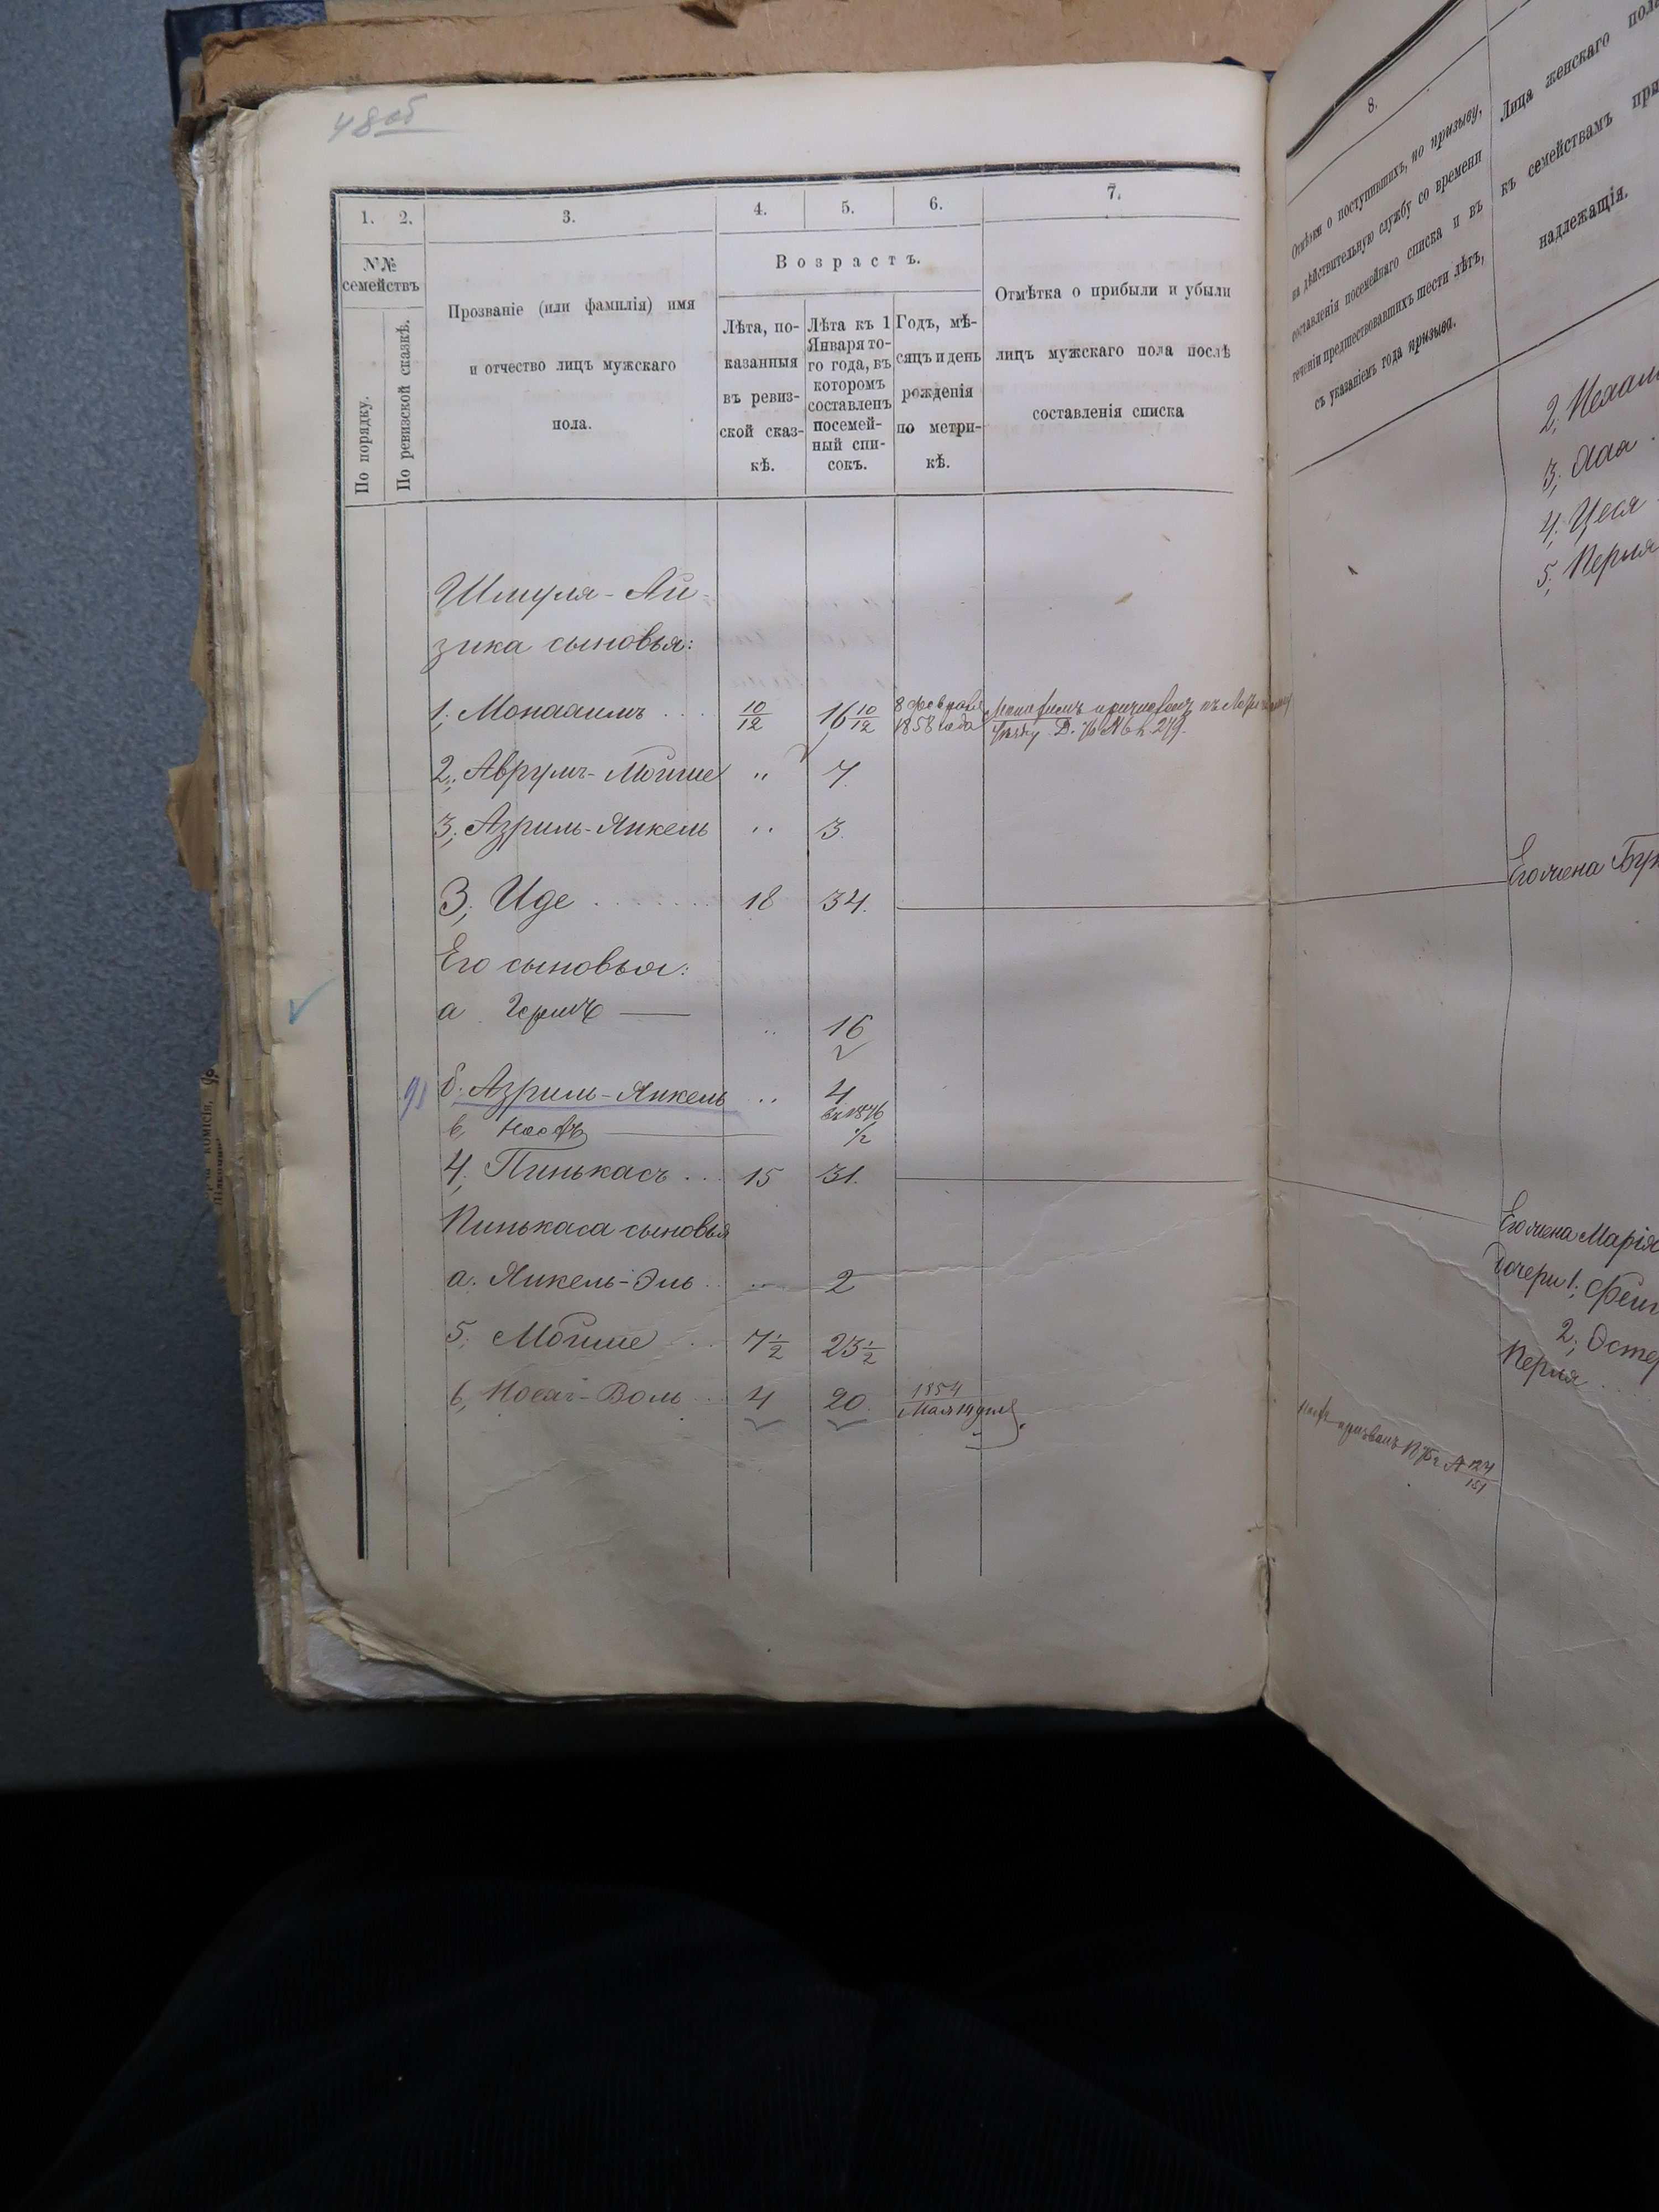 48об
1. 2. 3. 4. 5. 6. 7.
№№ семействъ
По порядку.
По ревизской сказкѣ.
Прозваніе (или фамилія) имя
и отчество лицъ мужскаго
пола.
Возрастъ.
Лѣта, по-
казанныя
въ ревиз-
ской сказ-
кѣ.
Лѣта къ 1
Января то-
го года, въ
которомъ
составленъ
посемей-
ный спи-
сокъ.
Годъ, мѣ-
сяцъ и день
рожденія
по метри-
кѣ.
Отмѣтка о прибыли и убыли
лицъ мужскаго пола послѣ
составленія списка
Шмуля-Ай-
зика сыновья:
1; Монашимъ . . . 10/12 16 10/12 8 февраля
1858 года
2; Аврумъ-Мойше „ 7.
3; Азриль-Янкель „ 3.
3; Иде . . . . . . 18 34.
Его сыновья:
а Гершъ — „ 16
91 б. Азриль-Янкель „ 4
в, въ 1876 1/2
4; Пинькасъ . . . 15 31.
Пинькаса сыновья
а. Янкель-Эль . . „ 2
5. Мойше . . 7 1/2 23 1/2
6, Носъ-Воль . . 4 20. 1854
8.
Отмѣтки о поступившихъ, по призыву,
на дѣйствительную службу со времени
составленія посемейнаго списка и въ
теченіи предшествовавшихъ шести лѣтъ,
съ указаніемъ года призыва.
Лица женскаго пола
къ семействамъ при
надлежащія.
4; Цеся
5; Перля
Его жена
Его жена Марія
Дочери 1;
2; Эстер
Перля